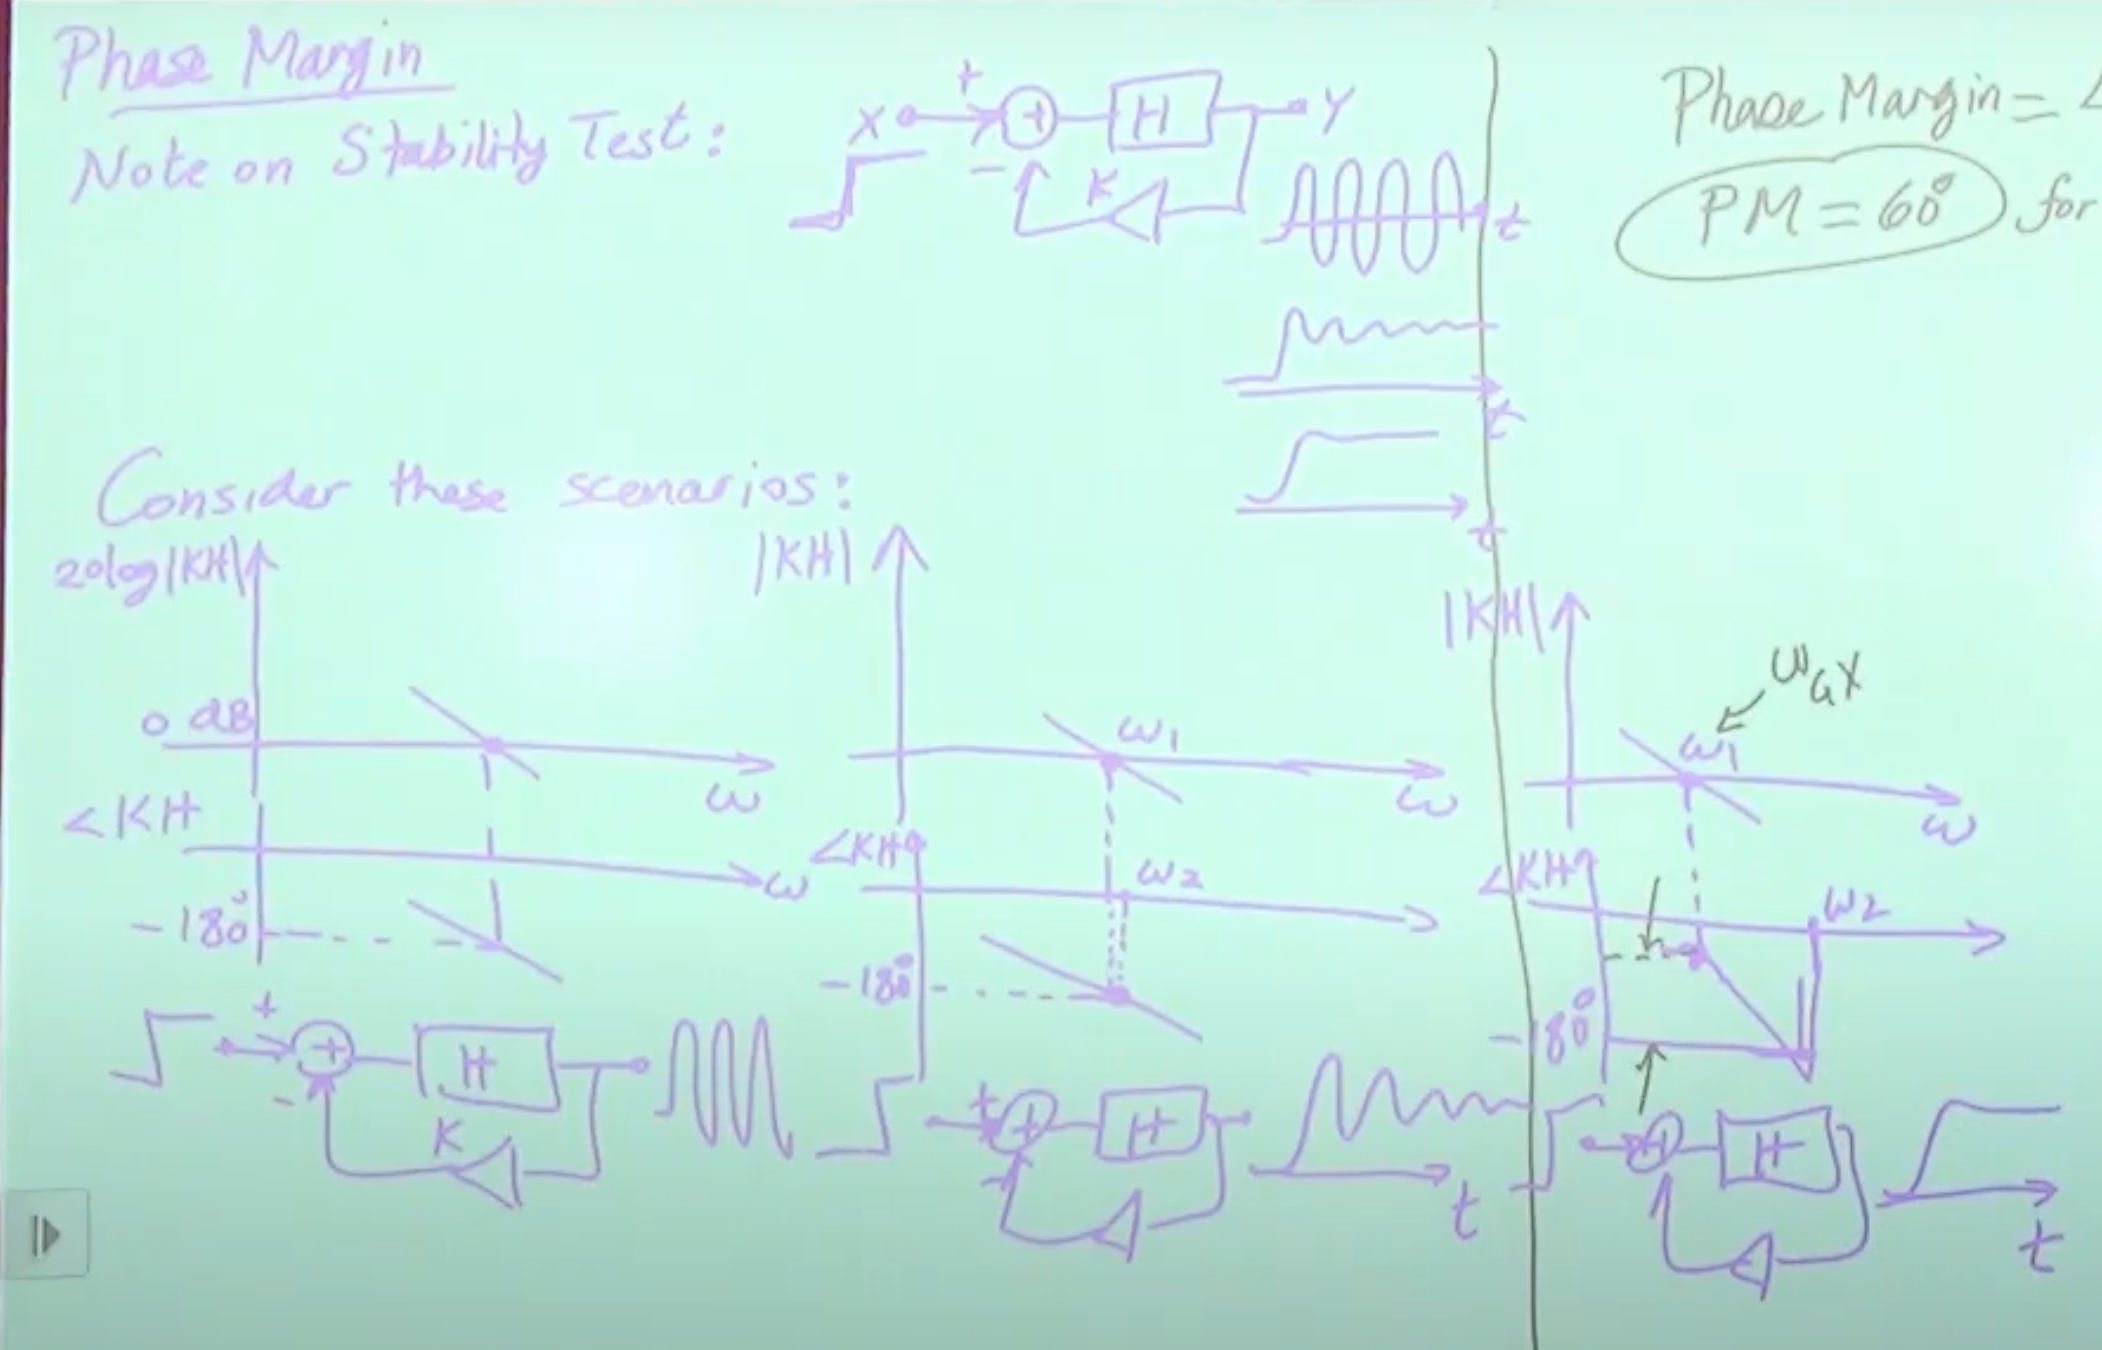 Phase Margin
Note on Stability Test:
X
+
+
-
H
Y
K
t
t
t
Phase Margin = ∠
PM = 60° for
Consider these scenarios:
20log|KH|
0 dB
ω
∠KH
ω
-180°
+
+
-
H
K
|KH|
ω1
ω
∠KH
ω2
-180°
+
+
-
H
t
|KH|
ωGX
ω1
ω
∠KH
ω2
-180°
+
H
t